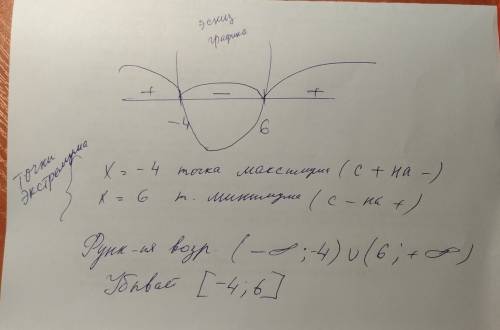 эскиз
графика
+ − +
-4 6
Точки
экстремума
x = -4 точка максимума (с + на -)
x = 6 т. минимума (с - на +)
Функ-ия возр. (-∞;-4)∪(6;+∞)
Убывает [-4;6]